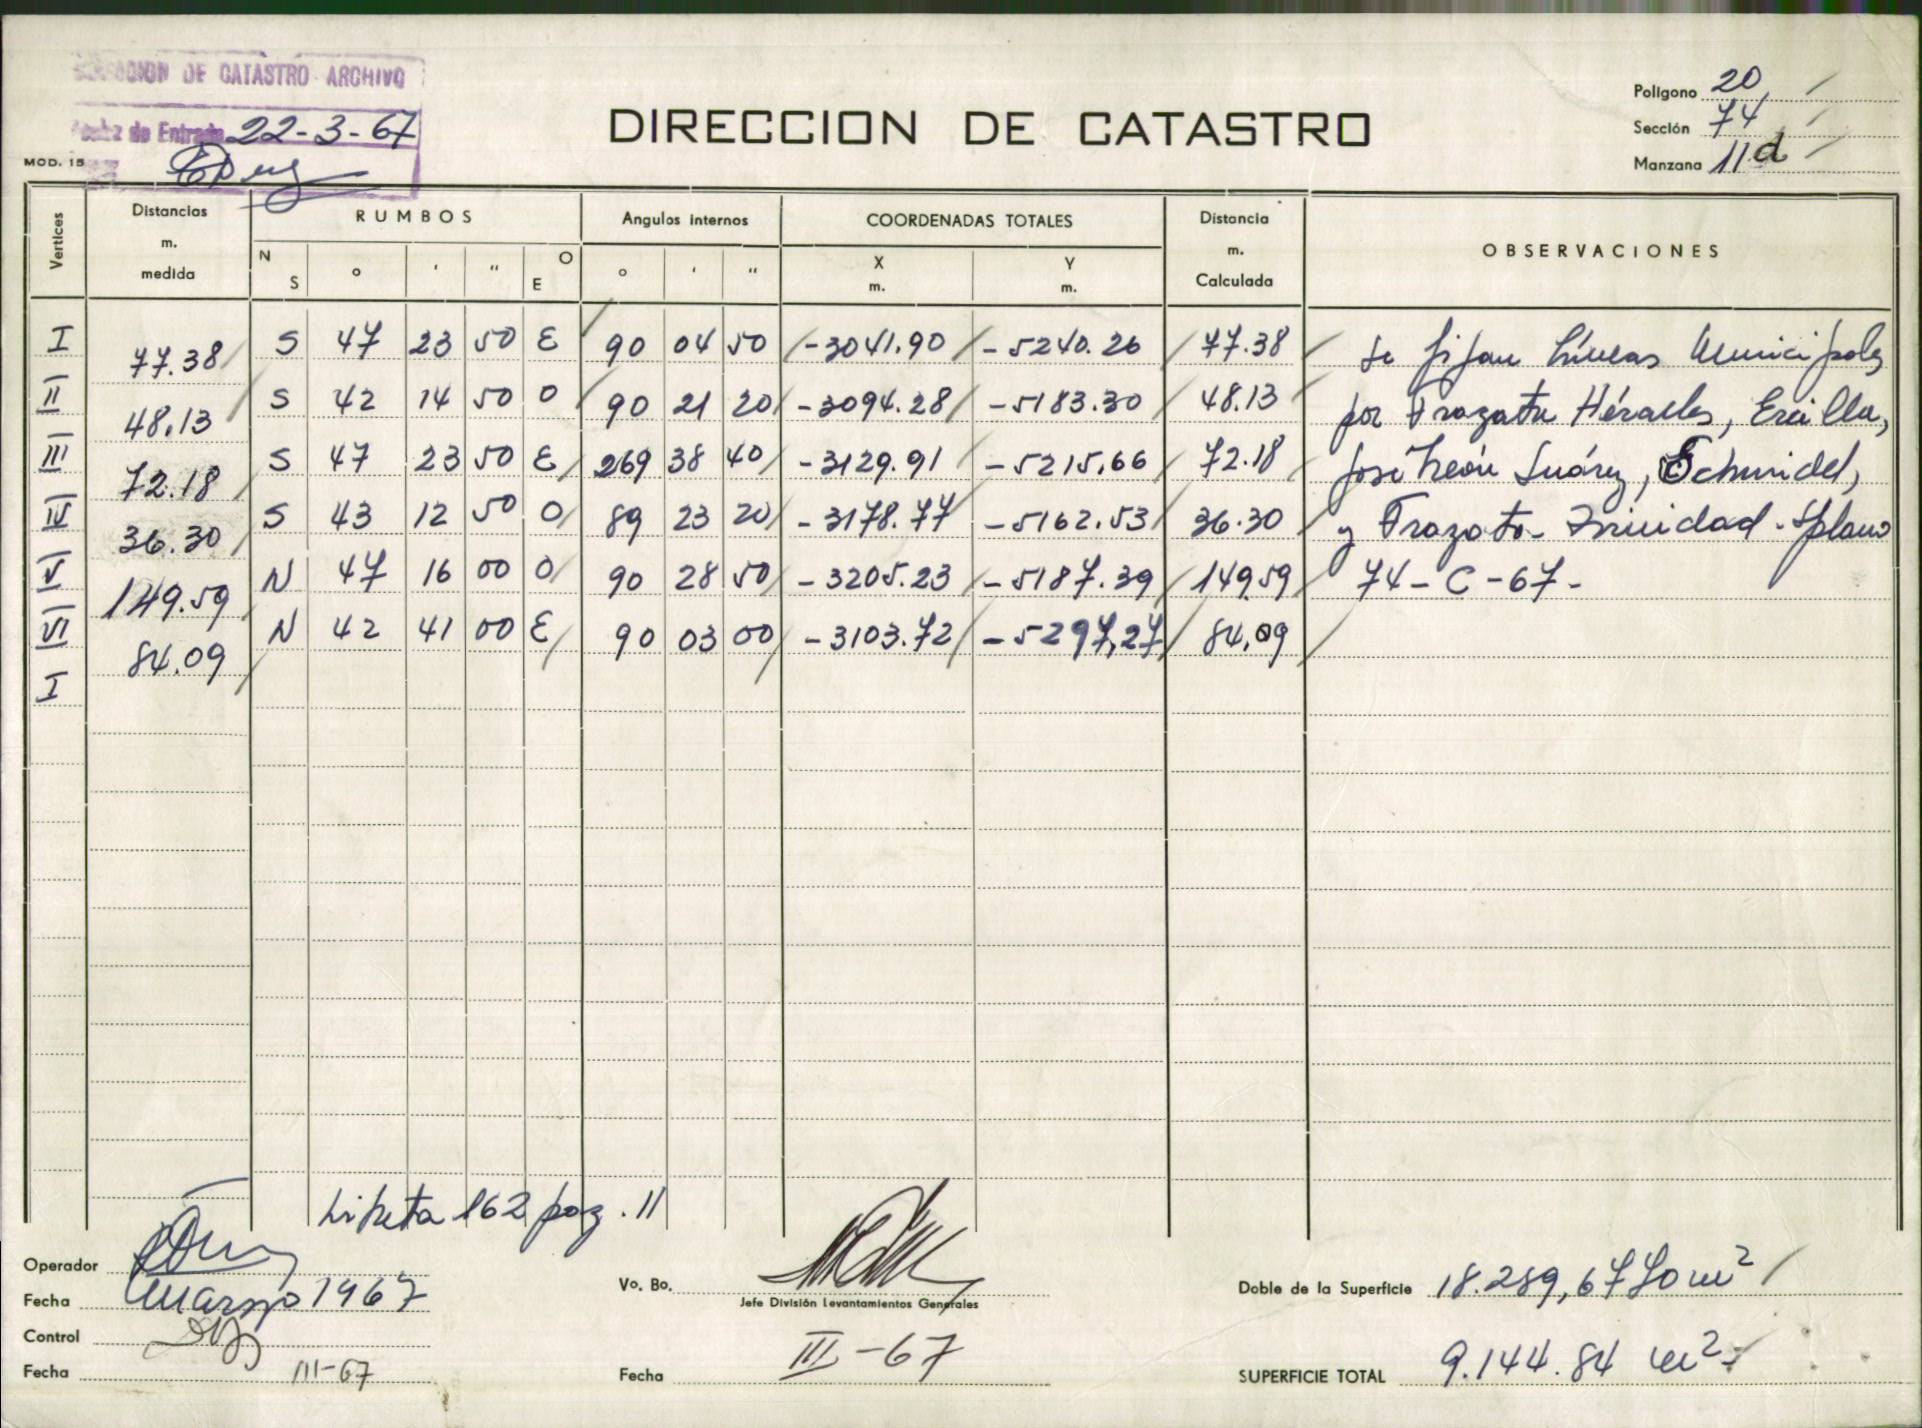 DIRECCION DE CATASTRO ARCHIVO
Fecha de Entrada 22-3-67
MOD. 15
DIRECCION DE CATASTRO
Polígono 20
Sección 74
Manzana 11d
Vertices Distancias m. medida RUMBOS N S ° ' " O E Angulos internos ° ' " COORDENADAS TOTALES X m. Y m. Distancia m. Calculada OBSERVACIONES
I 77.38 S 47 23 50 E 90 04 50 -3041.90 -5240.26 77.38 Se fijan Líneas Municipales
II 48.13 S 42 14 50 O 90 21 20 -3094.28 -5183.30 48.13 por Trazato Héroles, Ercilla,
III 72.18 S 47 23 50 E 269 38 40 -3129.91 -5215.66 72.18 José León Suárez, Schmidel,
IV 36.30 S 43 12 50 O 89 23 20 -3178.77 -5162.53 36.30 y Trazato - Trinidad - S/plano
V 149.59 N 47 16 00 O 90 28 50 -3205.23 -5187.39 149.59 74-C-67-
VI 84.09 N 42 41 00 E 90 03 00 -3103.72 -5297,27 84.09
I
Libreta 162 pag. 11
Operador
Fecha Marzo 1967
Control
Fecha III-67
Vo. Bo.
Jefe División Levantamientos Generales
Fecha III-67
Doble de la Superficie 18.289,6770 m²
SUPERFICIE TOTAL 9.144.84 m²-